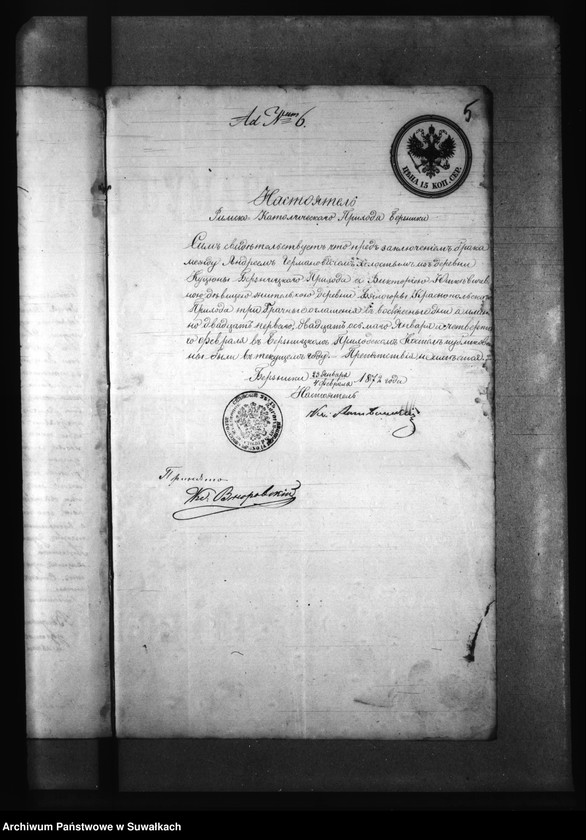 Ad № 6.
5
ЦѢНА 15 КОП. СЕР.
Настоятель
Римско Католическаго Прихода Бержники
Симъ свидѣтельствуетъ что предъ заключеніемъ брака
между Андреемъ холостымъ изъ деревни
Куцюны Бержницкаго Прихода а Викторіею
дѣвицею жительною деревни Краснопольскаго
Прихода три брачныя оглашенія въ воскресные дни а имен
но двадцать перваго, двадцать осьмаго Января и четверта
го февраля въ Бержницкомъ Приходскомъ Костелѣ
ны были въ текущемъ году. Препятствія не
Бержники 23 Января
4 февраля 1872 года
Настоятель
Кс.
Принято
Кс.
Archiwum Państwowe w Suwałkach